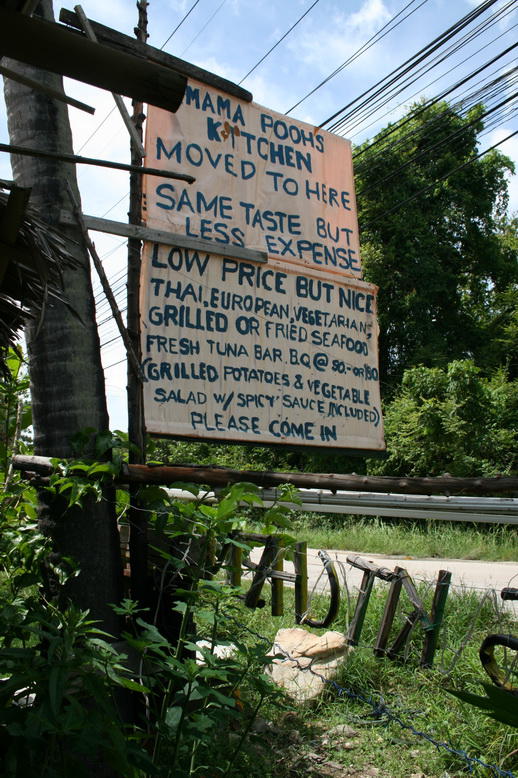 MAMA POOHS
KITCHEN
MOVED TO HERE
SAME TASTE BUT
LESS EXPENSE
LOW PRICE BUT NICE
THAI, EUROPEAN, VEGETARIAN
GRILLED OR FRIED SEAFOOD
FRESH TUNA BAR. B.Q @ 80.- OR 180
(GRILLED POTATOES & VEGETABLE
SALAD W/ SPICY SAUCE INCLUDED)
PLEASE COME IN